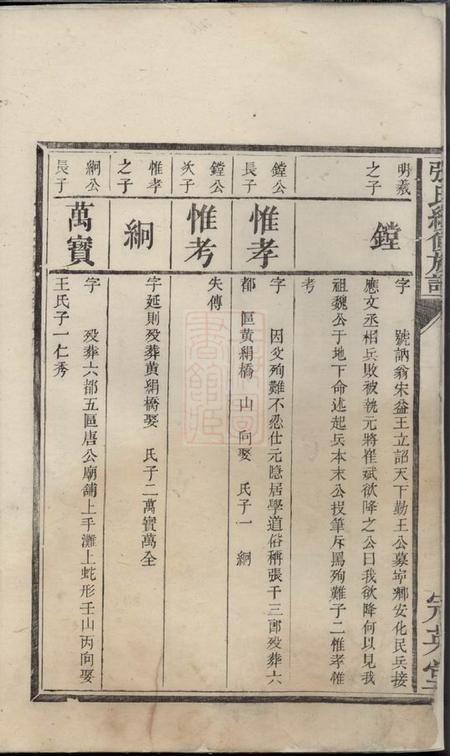 張氏續修族譜
明羲
之子
鏜
字　號訥翁宋益王立詔天下勤王公募寧鄉安化民兵接
應文丞相兵敗被執元將崔斌欲降之公曰我欲降何以見我
祖魏公于地下命述起兵本末公投筆斥罵殉難子二惟孝惟
考
鏜公
長子
惟孝
字　因父殉難不忍仕元隱居學道俗稱張千三郎歿葬六
都　區黃絹橋　山　向娶　氏子一　絅
鏜公
次子
惟考
失傳
惟孝
之子
絅
字延則歿葬黃絹橋娶　氏子二萬寶萬全
絅公
長子
萬寶
字　歿葬六都五區唐公廟舖上手灘上蛇形壬山丙向娶
王氏子一仁秀